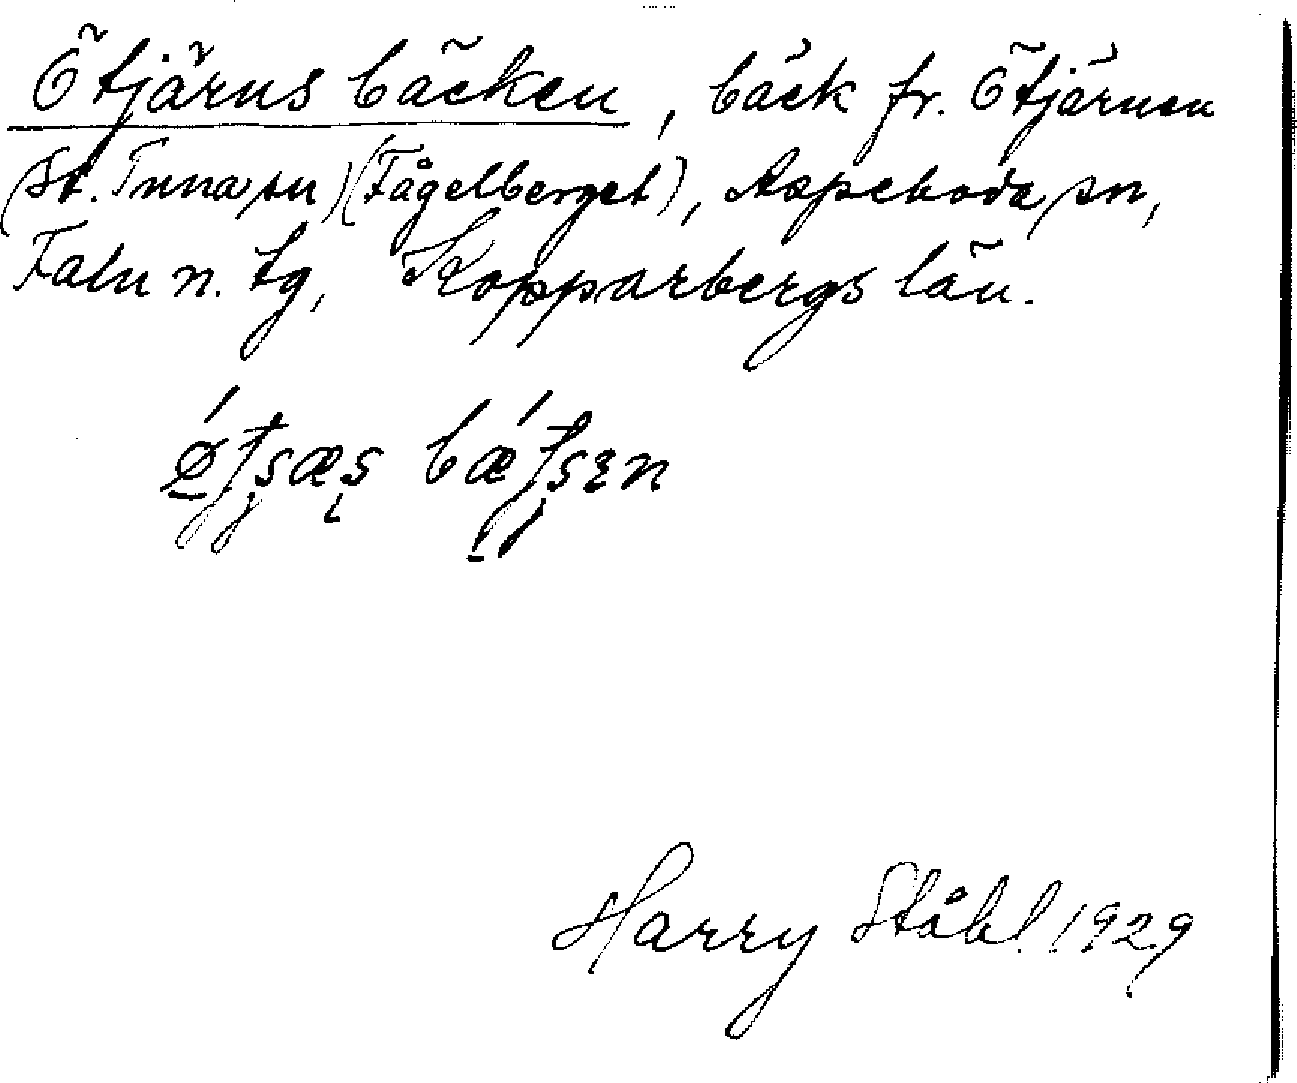 Ötjärnsbäcken, bäck fr. Ötjärnen
(St. Tuna sn) (Fågelberget), Aspeboda sn,
Falu n. tg, Kopparbergs län.
Harry Ståhl. 1929